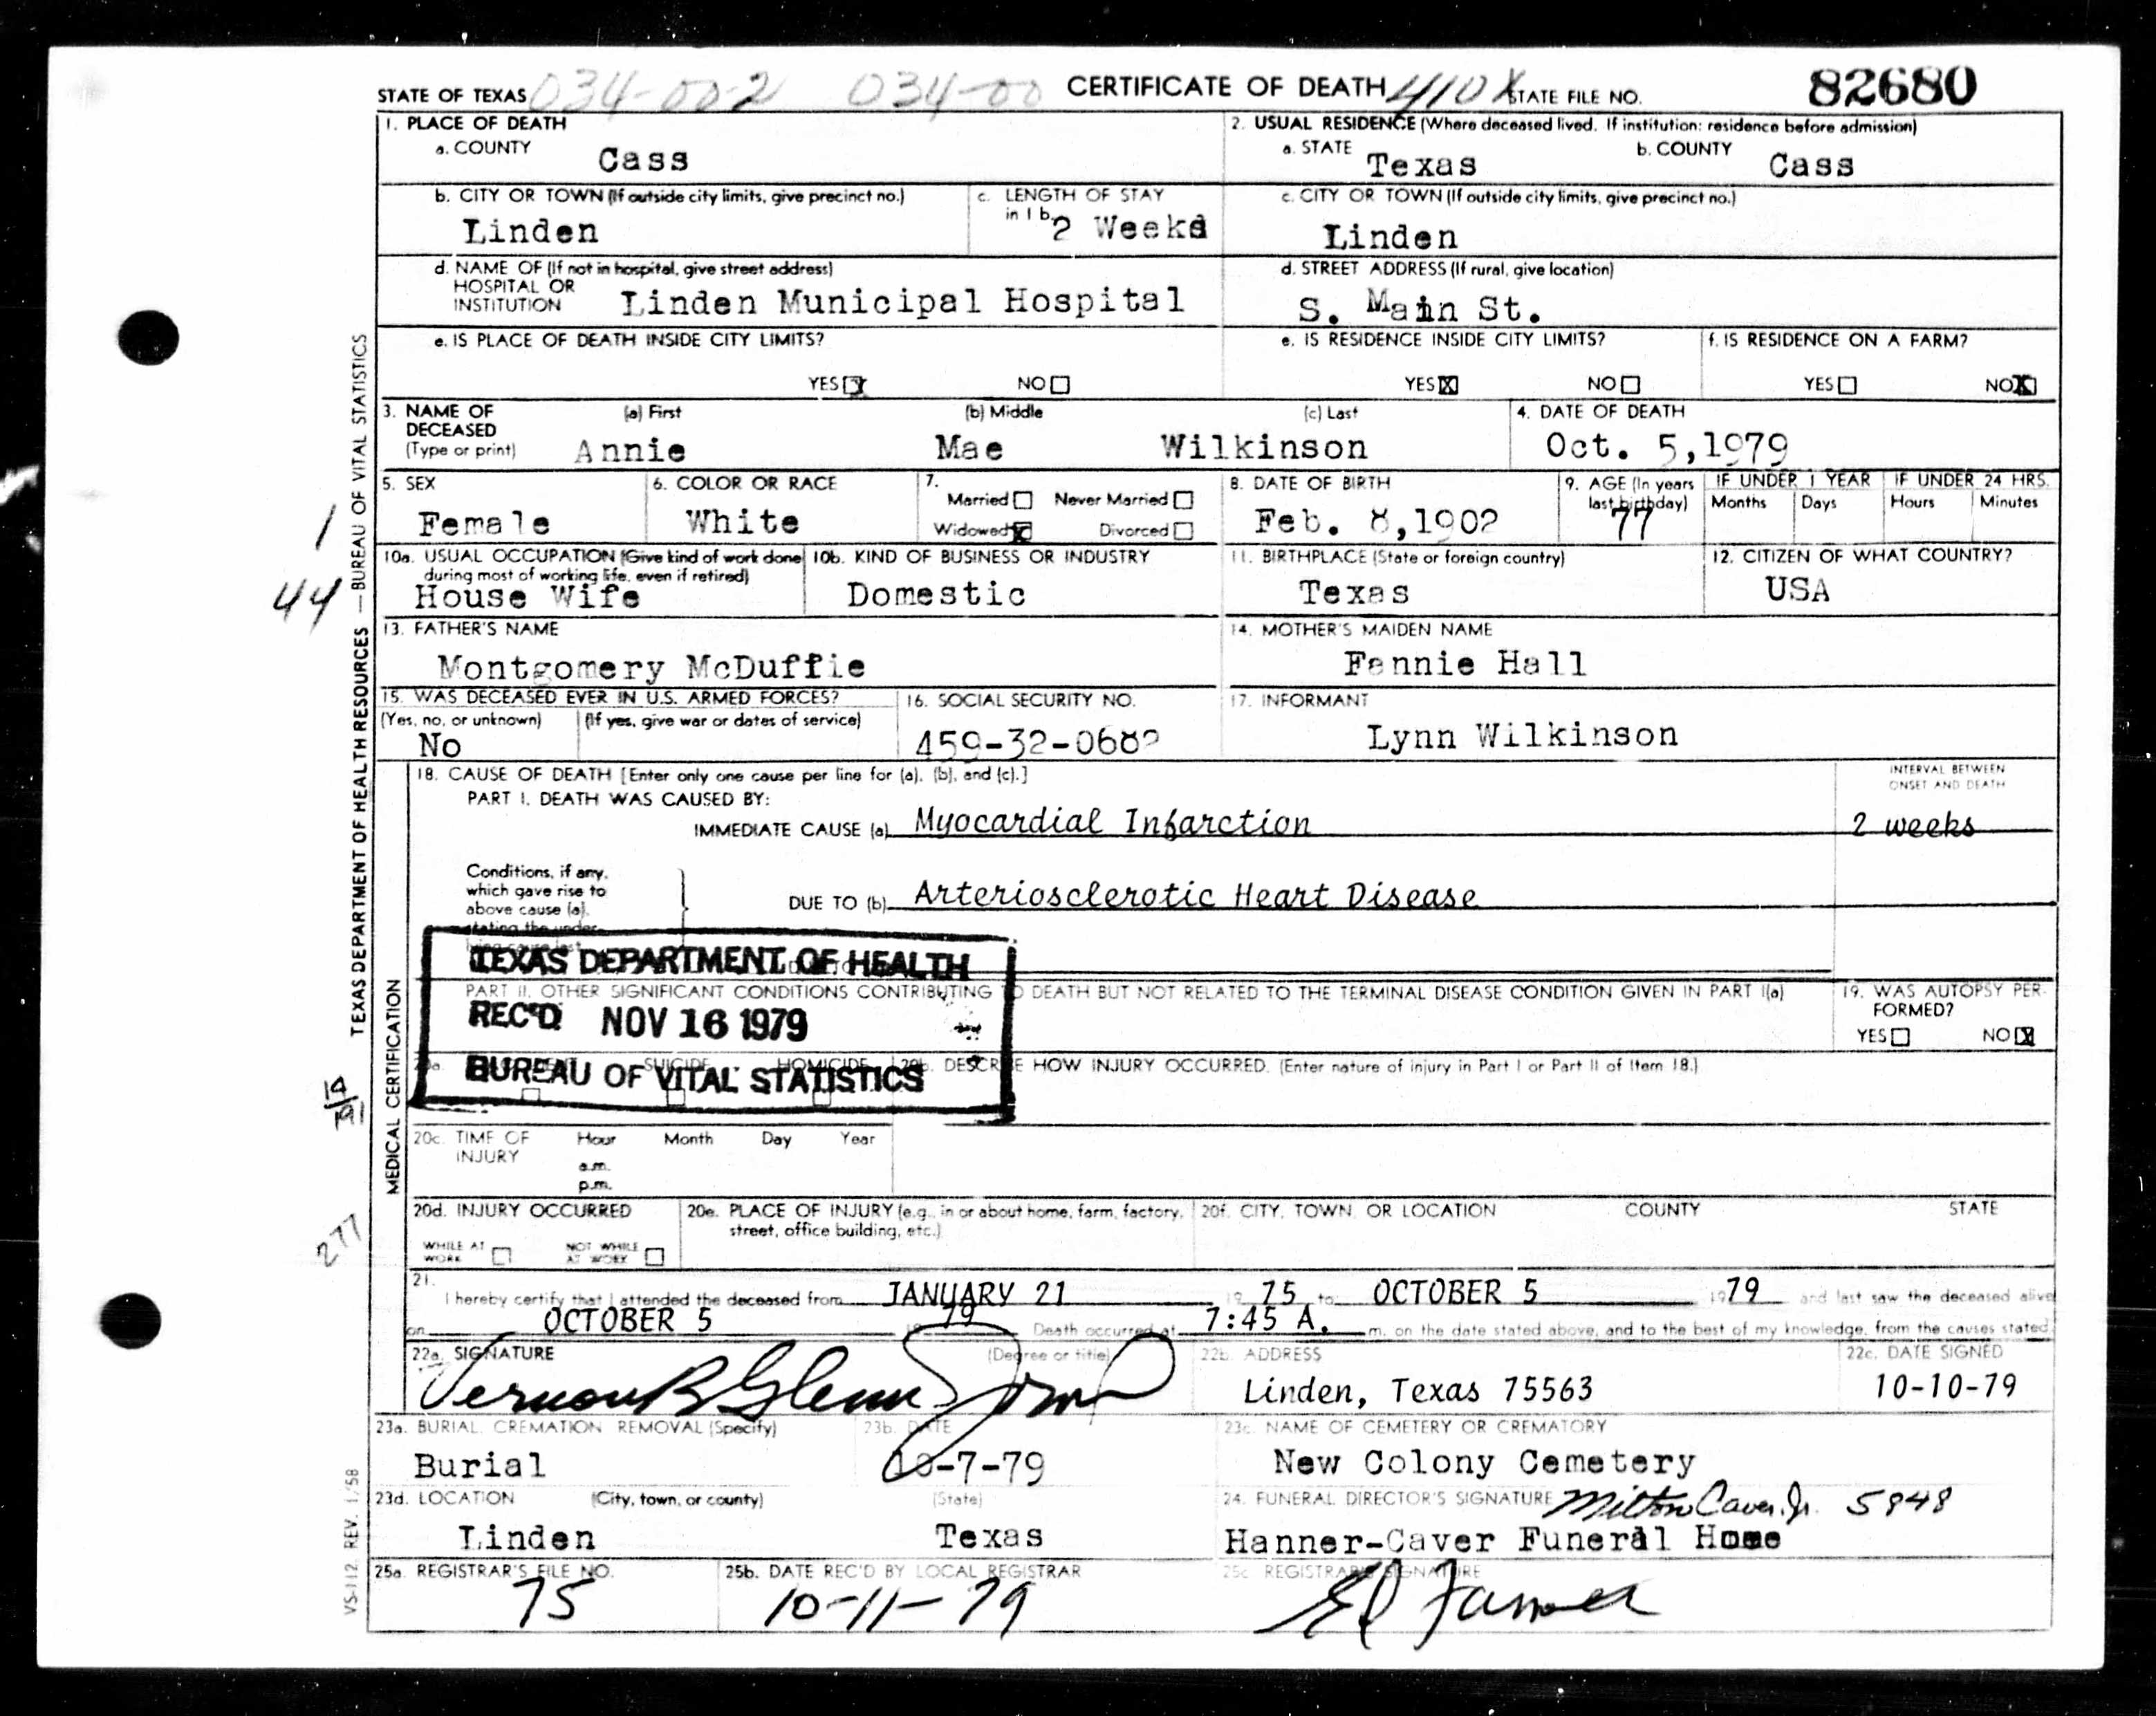 STATE OF TEXAS 034-00-2 034-00 CERTIFICATE OF DEATH 410X STATE FILE NO. 82680
1. PLACE OF DEATH
a. COUNTY Cass
2. USUAL RESIDENCE (Where deceased lived. If institution: residence before admission)
a. STATE Texas b. COUNTY Cass
b. CITY OR TOWN (If outside city limits, give precinct no.)
Linden
c. LENGTH OF STAY
in 1 b. 2 Weeks
c. CITY OR TOWN (If outside city limits, give precinct no.)
Linden
d. NAME OF (If not in hospital, give street address)
HOSPITAL OR
INSTITUTION Linden Municipal Hospital
d. STREET ADDRESS (If rural, give location)
S. Main St.
e. IS PLACE OF DEATH INSIDE CITY LIMITS?
YES X NO
e. IS RESIDENCE INSIDE CITY LIMITS?
YES X NO
f. IS RESIDENCE ON A FARM?
YES NO X
3. NAME OF
DECEASED
(Type or print)
(a) First (b) Middle (c) Last
Annie Mae Wilkinson
4. DATE OF DEATH
Oct. 5,1979
5. SEX
Female
6. COLOR OR RACE
White
7.
Married Never Married
Widowed X Divorced
8. DATE OF BIRTH
Feb. 8,1902
9. AGE (In years
last birthday)
77
IF UNDER 1 YEAR
Months Days
IF UNDER 24 HRS.
Hours Minutes
10a. USUAL OCCUPATION (Give kind of work done
during most of working life, even if retired)
House Wife
10b. KIND OF BUSINESS OR INDUSTRY
Domestic
11. BIRTHPLACE (State or foreign country)
Texas
12. CITIZEN OF WHAT COUNTRY?
USA
13. FATHER'S NAME
Montgomery McDuffie
14. MOTHER'S MAIDEN NAME
Fannie Hall
15. WAS DECEASED EVER IN U.S. ARMED FORCES?
(Yes, no, or unknown) (If yes, give war or dates of service)
No
16. SOCIAL SECURITY NO.
459-32-0682
17. INFORMANT
Lynn Wilkinson
18. CAUSE OF DEATH [Enter only one cause per line for (a), (b), and (c).]
INTERVAL BETWEEN
ONSET AND DEATH
PART I. DEATH WAS CAUSED BY:
IMMEDIATE CAUSE (a) Myocardial Infarction 2 weeks
Conditions, if any,
which gave rise to
above cause (a),
stating the under-
lying cause last.
DUE TO (b) Arteriosclerotic Heart Disease
TEXAS DEPARTMENT OF HEALTH
REC'D NOV 16 1979
BUREAU OF VITAL STATISTICS
PART II. OTHER SIGNIFICANT CONDITIONS CONTRIBUTING TO DEATH BUT NOT RELATED TO THE TERMINAL DISEASE CONDITION GIVEN IN PART I(a)
19. WAS AUTOPSY PER-
FORMED?
YES NO X
SUICIDE HOMICIDE
20b. DESCRIBE HOW INJURY OCCURRED. (Enter nature of injury in Part I or Part II of Item 18.)
20c. TIME OF
INJURY
Hour Month Day Year
a.m.
p.m.
20d. INJURY OCCURRED
WHILE AT
WORK
NOT WHILE
AT WORK
20e. PLACE OF INJURY (e.g., in or about home, farm, factory,
street, office building, etc.)
20f. CITY, TOWN, OR LOCATION COUNTY STATE
21.
I hereby certify that I attended the deceased from JANUARY 21 19 75 to OCTOBER 5 19 79 and last saw the deceased alive
on OCTOBER 5 19 79 Death occurred at 7:45 A. m. on the date stated above, and to the best of my knowledge, from the causes stated.
22a. SIGNATURE (Degree or title)
Vernon B Glenn Jr MD
22b. ADDRESS
Linden, Texas 75563
22c. DATE SIGNED
10-10-79
23a. BURIAL, CREMATION, REMOVAL (Specify)
Burial
23b. DATE
10-7-79
23c. NAME OF CEMETERY OR CREMATORY
New Colony Cemetery
23d. LOCATION (City, town, or county) (State)
Linden Texas
24. FUNERAL DIRECTOR'S SIGNATURE Milton Caver, Jr. 5948
Hanner-Caver Funeral Home
25a. REGISTRAR'S FILE NO.
75
25b. DATE REC'D BY LOCAL REGISTRAR
10-11-79
25c. REGISTRAR'S SIGNATURE
TEXAS DEPARTMENT OF HEALTH RESOURCES — BUREAU OF VITAL STATISTICS
MEDICAL CERTIFICATION
VS-112 REV. 1/58
1
44
277